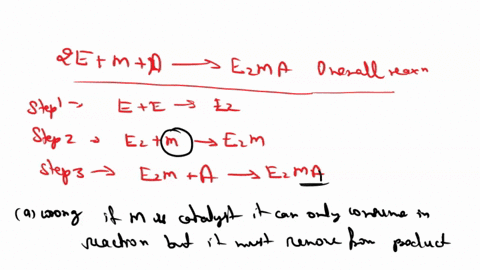 2E + m + A → E2mA Overall reaxn
Step1 → E + E → E2
Step2 → E2 + m → E2m
Step3 → E2m + A → E2mA
(a) wrong if m is catalyst it can only consume in
reaction but it must remove from product